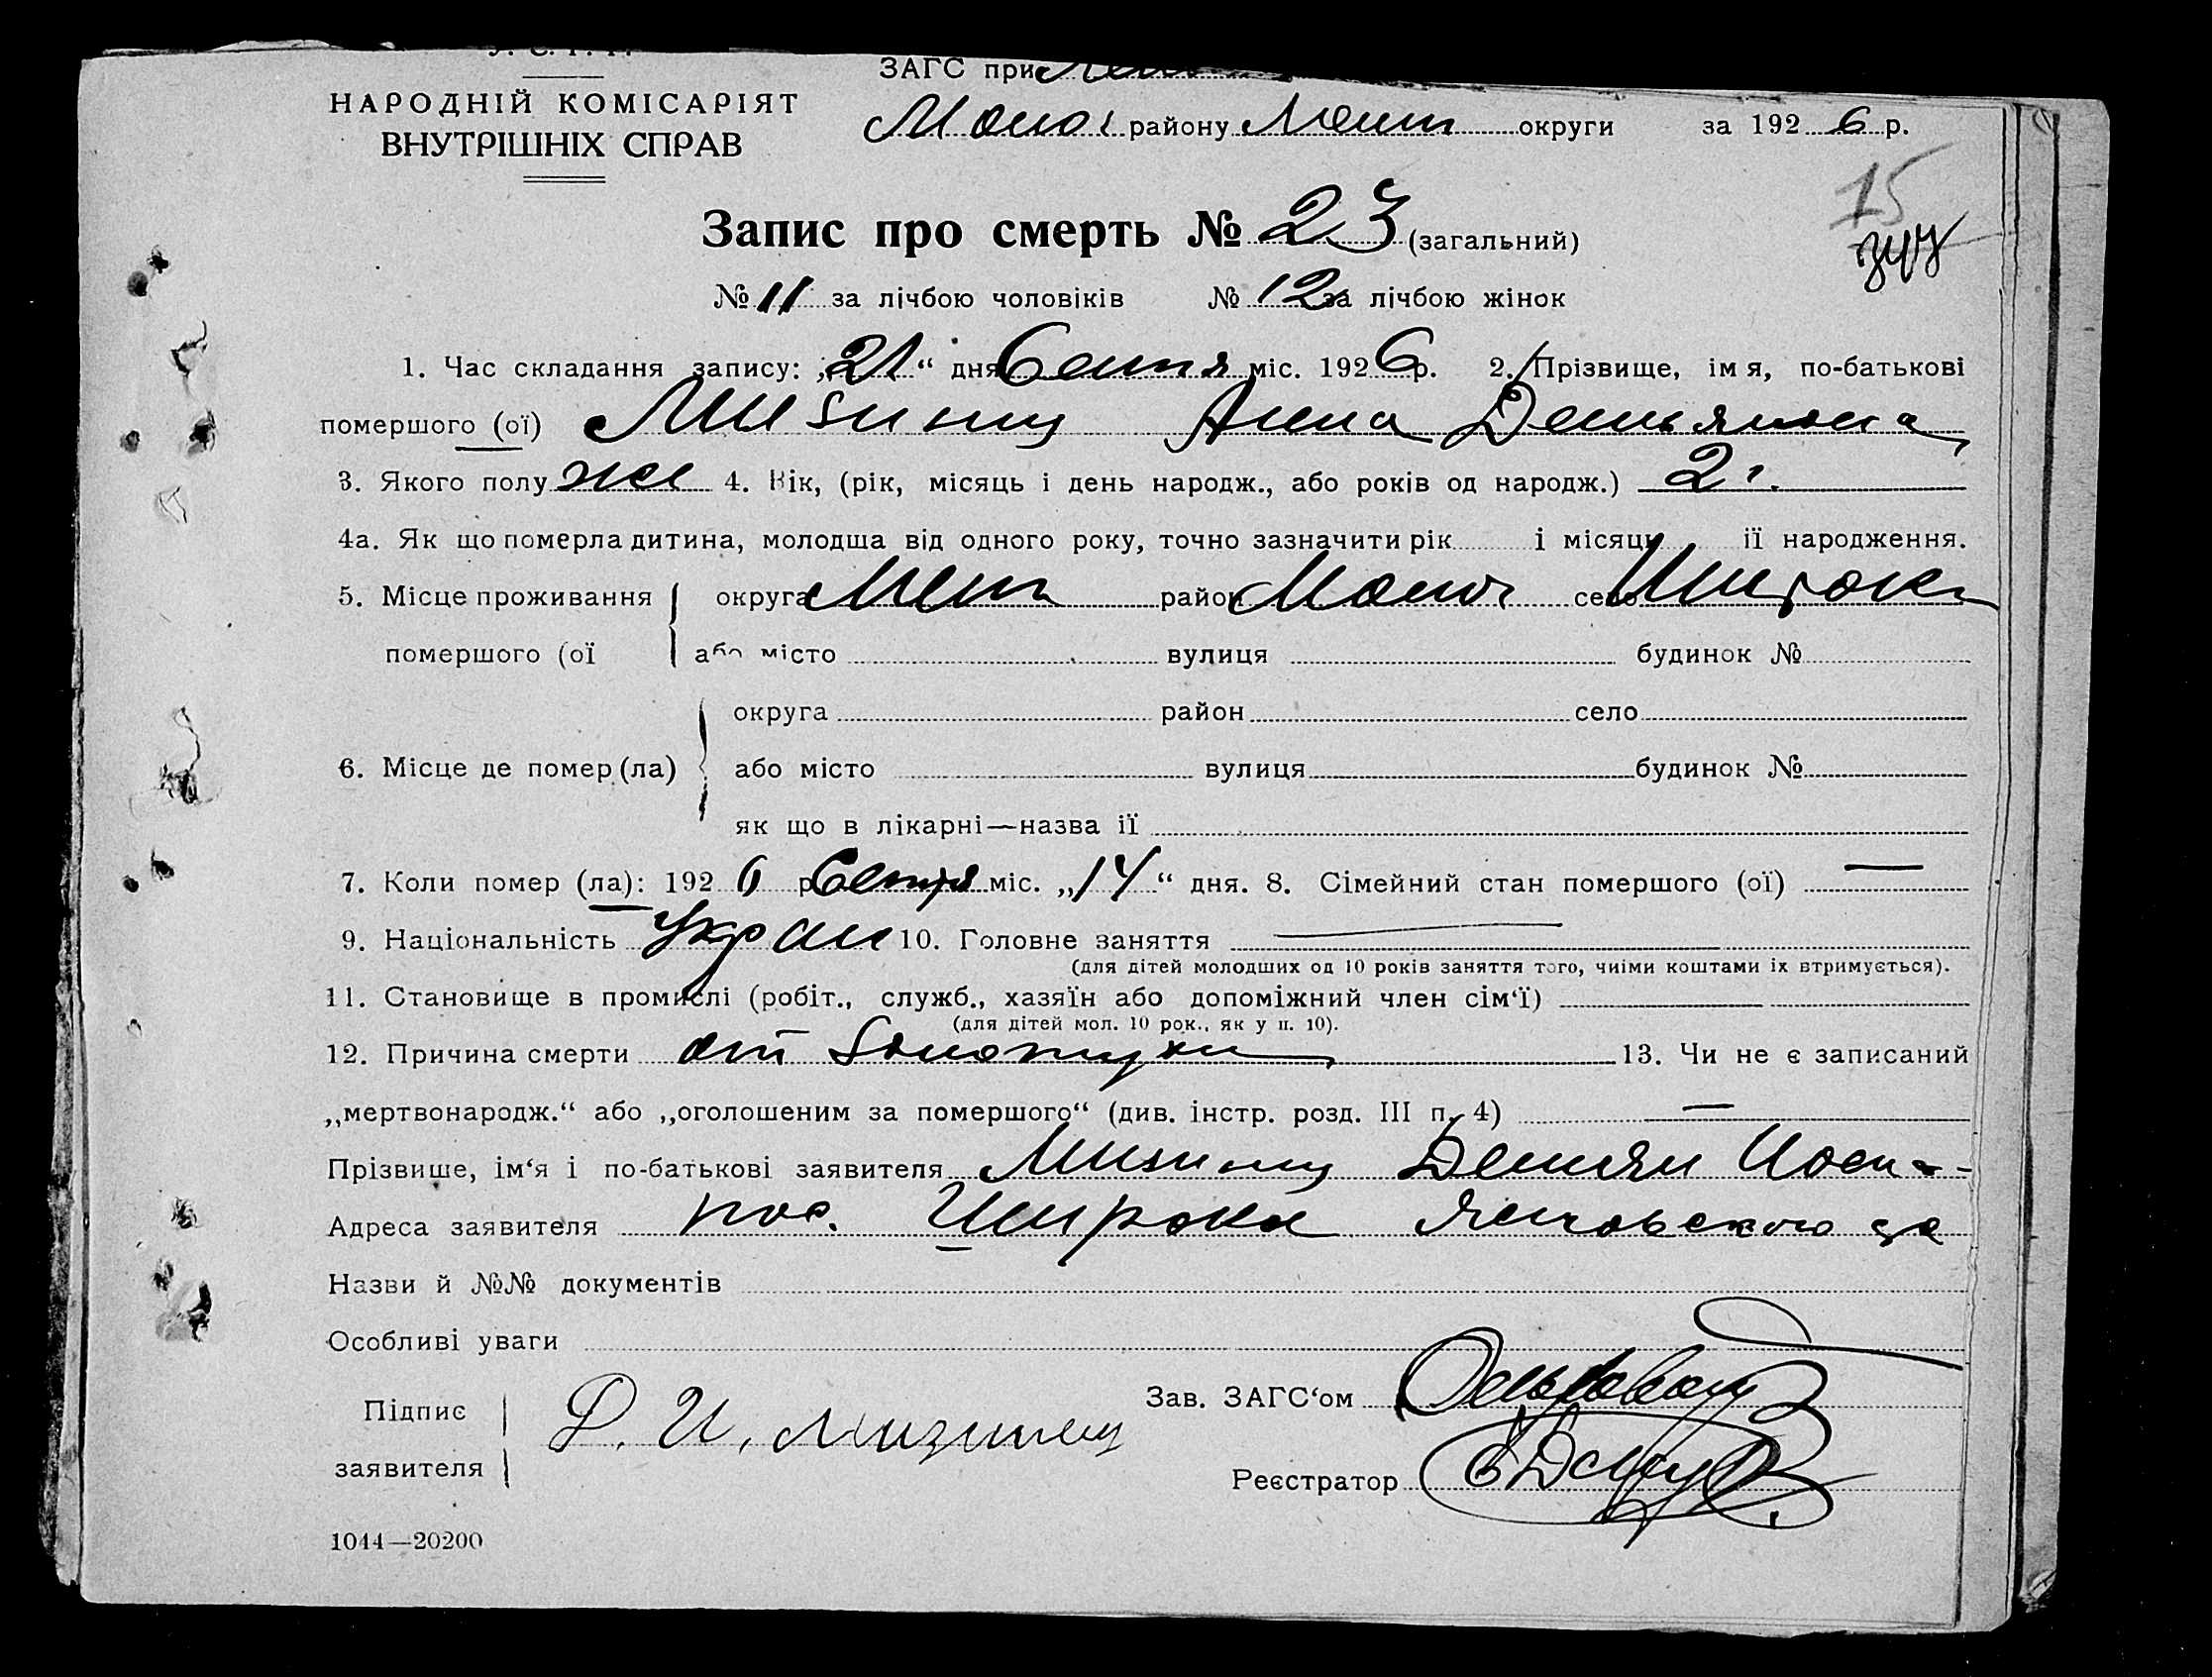 ЗАГС при
НАРОДНІЙ КОМІСАРІЯТ
ВНУТРІШНІХ СПРАВ
району округи за 1926 р.
Запис про смерть № 23 (загальний)
15
347
№ 11 за лічбою чоловіків № 12 за лічбою жінок
1. Час складання запису: „21“ дня міс. 1926 р. 2. Прізвище, імя, по-батькові
помершого (ої) Мизинец Анна Демьяновна
3. Якого полу же 4. Вік, (рік, місяць і день народж., або років од народж.) 2 г.
4а. Як що померла дитина, молодша від одного року, точно зазначити рік і місяць її народження.
5. Місце проживання округа район село Широка
помершого (ої або місто вулиця будинок №
округа район село
6. Місце де помер (ла) або місто вулиця будинок №
як що в лікарні—назва її
7. Коли помер (ла): 1926 р. міс. „14“ дня. 8. Сімейний стан помершого (ої) —
9. Національність Украи 10. Головне заняття —
(для дітей молодших од 10 років заняття того, чиіми коштами їх втримується).
11. Становище в промислі (робіт., служб., хазяїн або допоміжний член сім‘ї)
(для дітей мол. 10 рок., як у п. 10).
12. Причина смерти от 13. Чи не є записаний
„мертвонародж.“ або „оголошеним за помершого“ (див. інстр. розд. III п. 4) —
Прізвище, ім‘я і по-батькові заявителя Мизинец Демьян
Адреса заявителя пос. Широка
Назви й №№ документів
Особливі уваги
Підпис
заявителя
Д. И. Мизинец
Зав. ЗАГС‘ом
Реєстратор
1044—20200